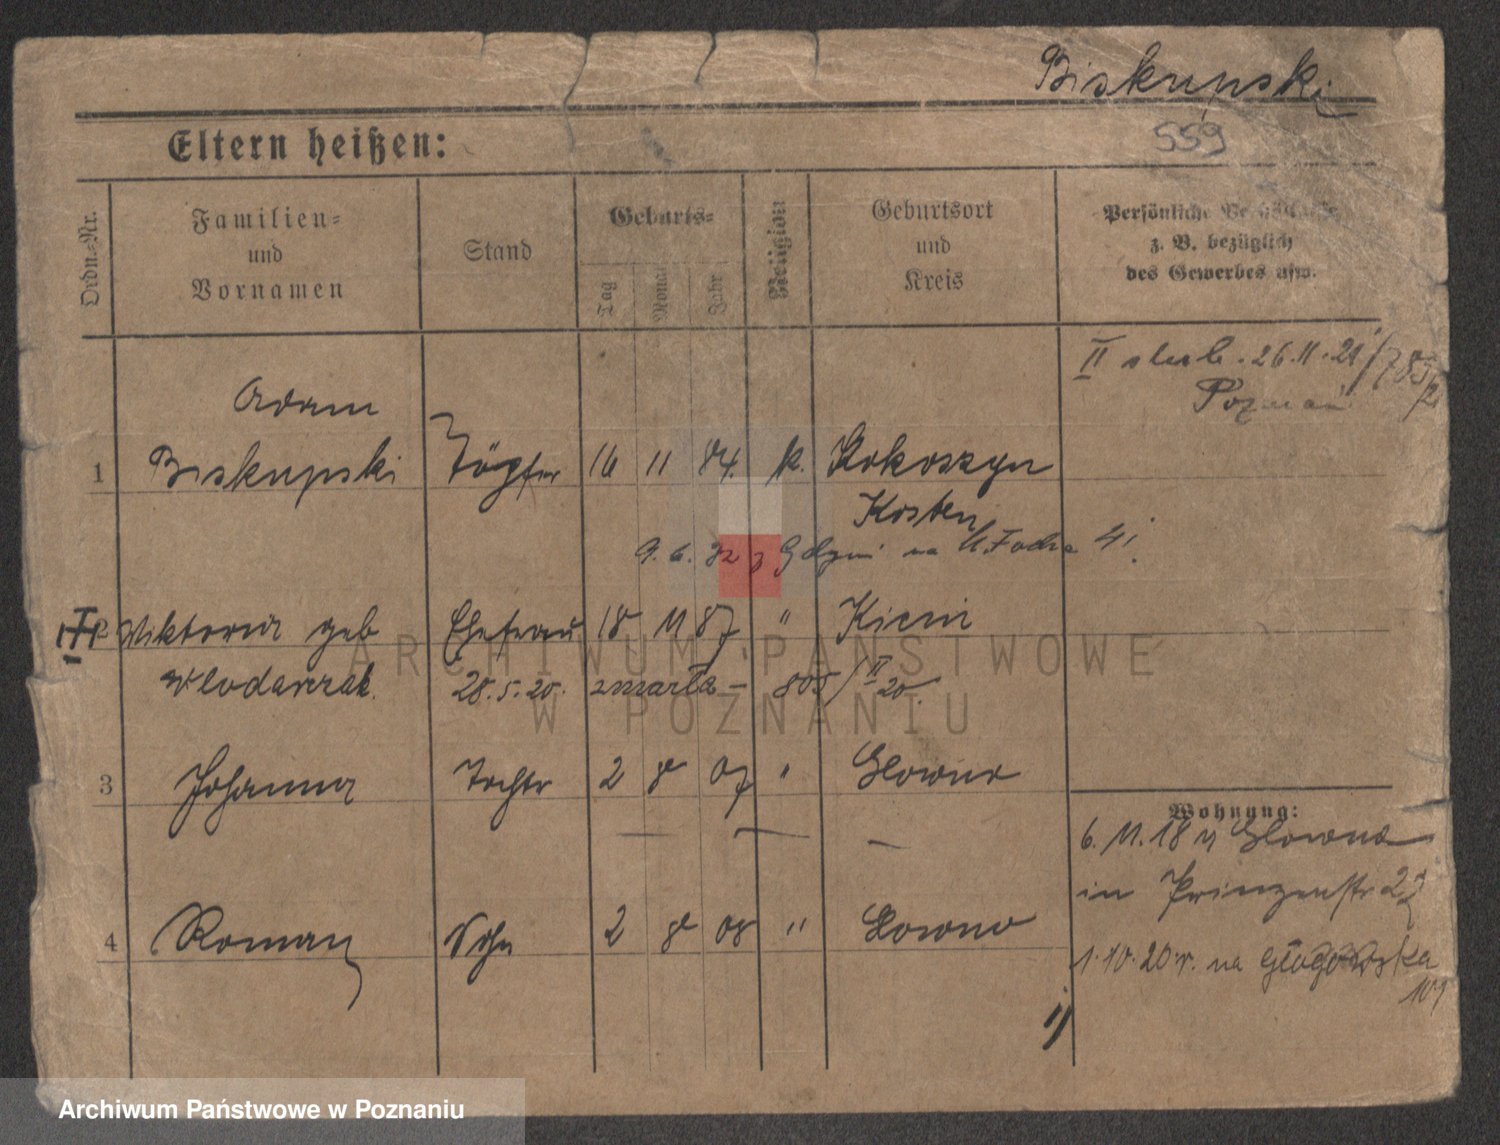 Biskupski
559
Eltern heißen:
Ordn.-Nr.
Familien-
und
Vornamen
Stand
Geburts-
Tag
Monat
Jahr
Religion
Geburtsort
und
Kreis
Persönliche
z. B. bezüglich
des Gewerbes usw.
II 26.11.21
Poznań
Adam
1 Biskupski Töpfer 16 11 84. k. Kokoszyn
Kosten
9.6.32 z Gdyni na Focha 41.
2 Wiktoria geb Ehefrau 18 11 87 " Kicin
Wlodarczak. 28.5.20. zmarła – 805/II 20.
3 Johanna Tochter 2 8 07 " Glowno
Wohnung:
6.11.18 Glowno
in Prinzenstr
4 Roman Sohn 2 8 08 " Glowno
1.10.20 r. na Głogowska
101
ARCHIWUM PAŃSTWOWE
W POZNANIU
Archiwum Państwowe w Poznaniu